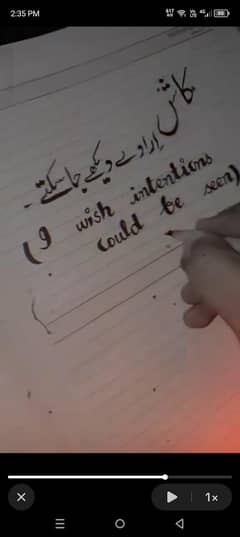 2:35 PM
کاش ارادے دیکھے جا سکتے۔
(I wish intentions
could be seen)
1×